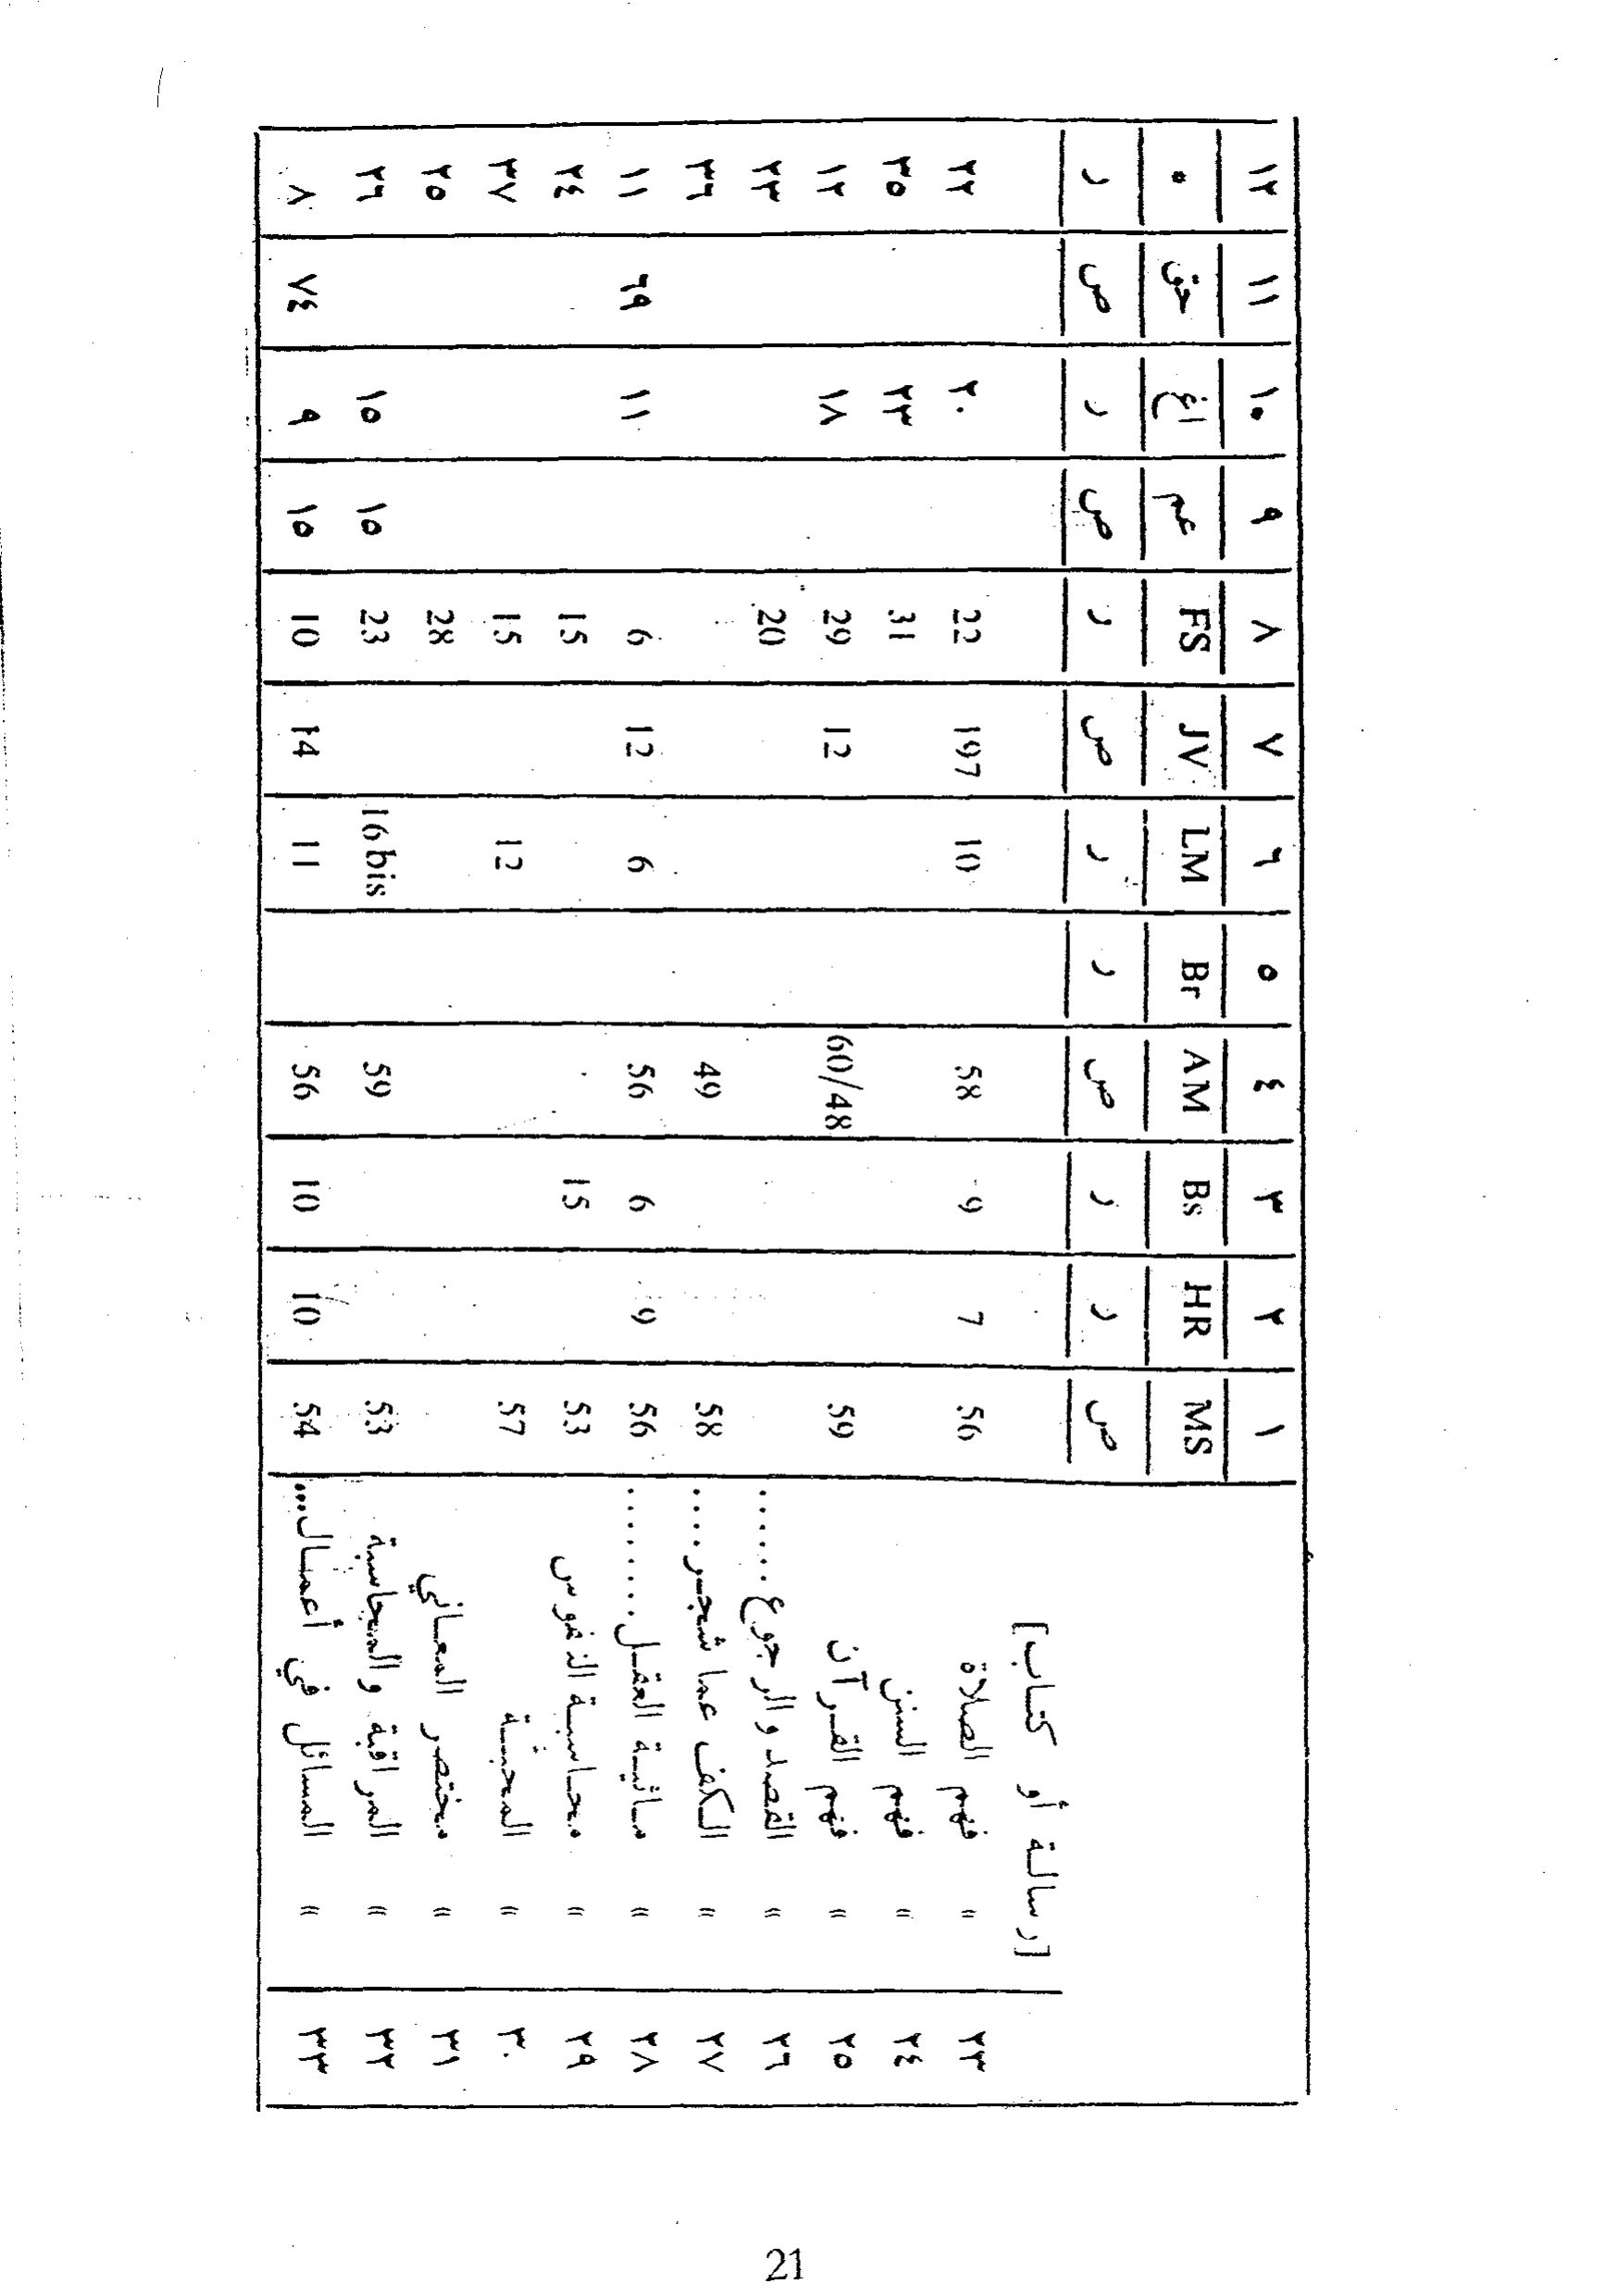 ١ ٢ ٣ ٤ ٥ ٦ ٧ ٨ ٩ ١٠ ١١ ١٢
MS HR Bs AM Br LM JV FS عم اغ حق *
ص ر ر ص ر ر ص ر ص ر ص ر
[رسالة أو كتاب]
٢٣ " فهم الصلاة 56 7 9 58 10 197 22 ٢٠ ٢٢
٢٤ " فهم السنن 31 ٢٣ ٣٥
٢٥ " فهم القرآن 59 60/48 12 29 ١٨ ١٢
٢٦ " القصد والرجوع ...... 20 ٢٣
٢٧ " الكف عما شجر .... 58 49 ٣٦
٢٨ " مائية العقل ........ 56 9 6 56 6 12 6 ١١ ٦٩ ١١
٢٩ " محاسبة النفوس 53 15 15 ٢٤
٣٠ " المحبة 57 12 15 ٣٧
٣١ " مختصر المعاني 28 ٢٥
٣٢ " المراقبة والمحاسبة 53 59 16bis 23 ١٥ ١٥ ٢٦
٣٣ " المسائل في أعمال... 54 10 10 56 11 14 10 ١٥ ٩ ٧٤ ٨
21